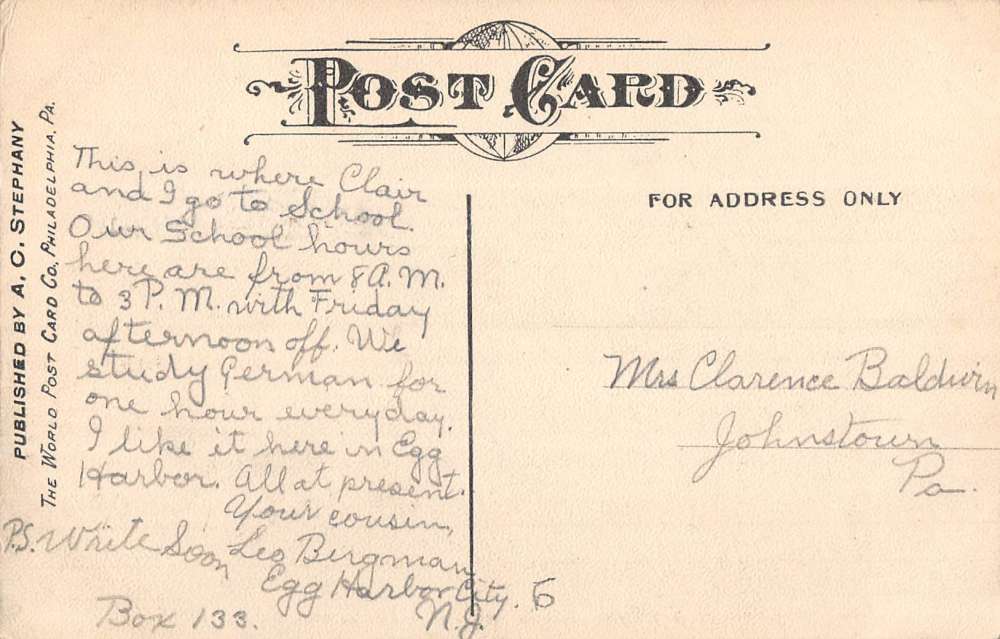 POST CARD
PUBLISHED BY A. C. STEPHANY
THE WORLD POST CARD CO., PHILADELPHIA, PA.
FOR ADDRESS ONLY
This is where Clair
and I go to School.
Our School hours
here are from 8 A.M.
to 3 P.M. with Friday
afternoon off. We
study German for
one hour everyday.
I like it here in Egg
Harbor. All at present.
Your cousin,
P.S. Write Soon Leo Bergman
Egg Harbor City. 6
Box 133. N.J.
Mrs Clarence Baldwin
Johnstown
Pa.